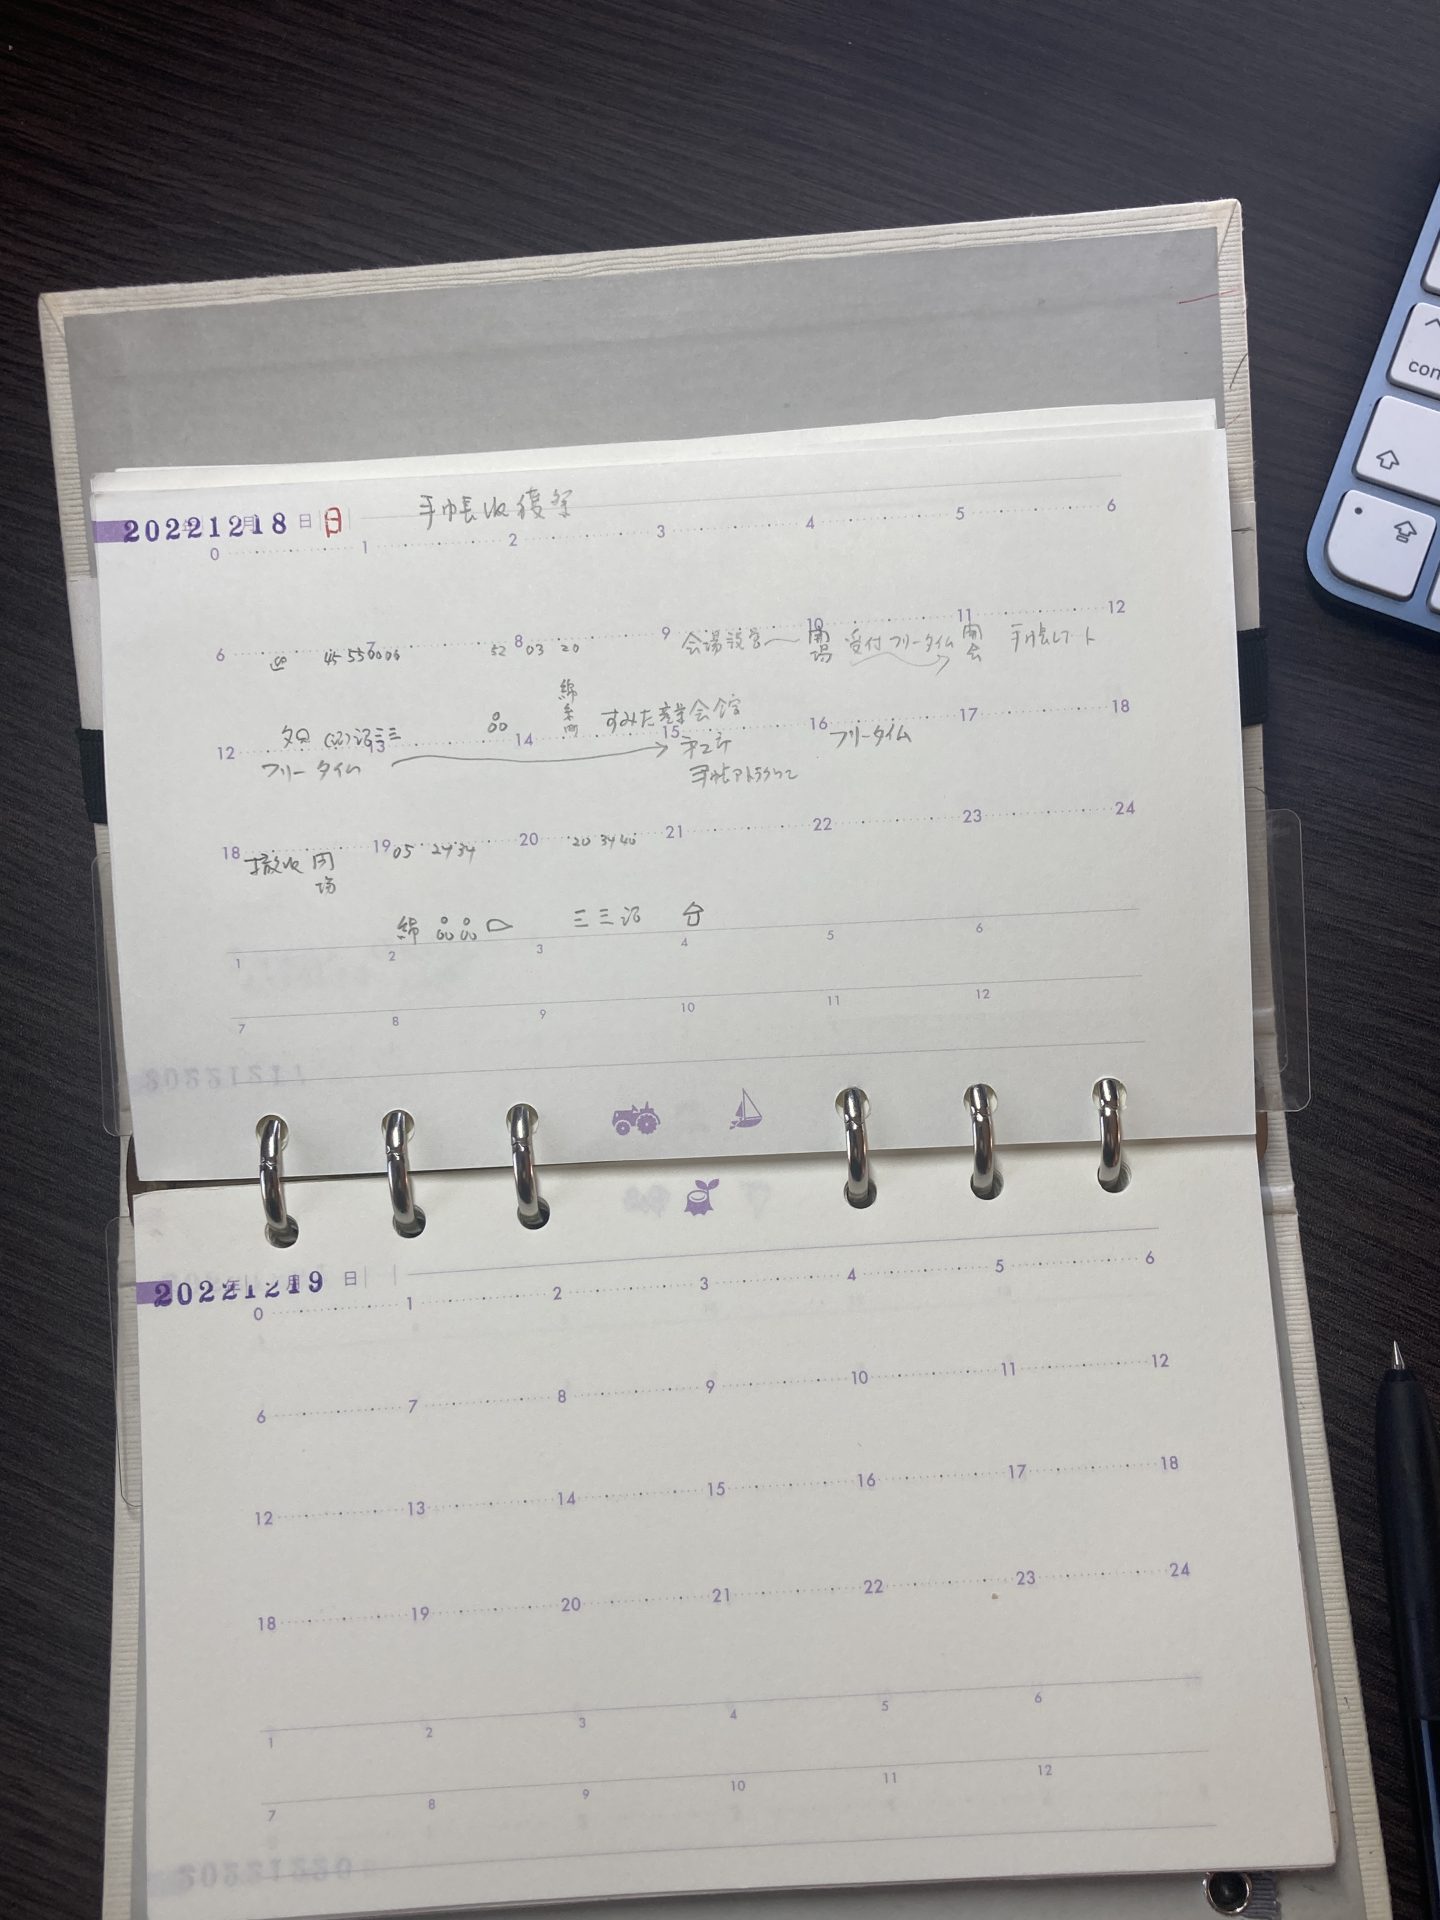 20221218 日 日 手帳収穫祭
0 1 2 3 4 5 6
6 8 9 10 11 12
45 55 52 03 20 会場設営 開場 受付 フリータイム 開会
綿糸町 すみだ産業会館
12 13 14 15 16 17 18
フリータイム フリータイム
18 19 20 21 22 23 24
撤収 閉場 05 24 34 20 34 40
綿 品品 三三沼
1 2 3 4 5 6
7 8 9 10 11 12
20221219 年 月 日
0 1 2 3 4 5 6
6 7 8 9 10 11 12
12 13 14 15 16 17 18
18 19 20 21 22 23 24
1 2 3 4 5 6
7 8 9 10 11 12
con